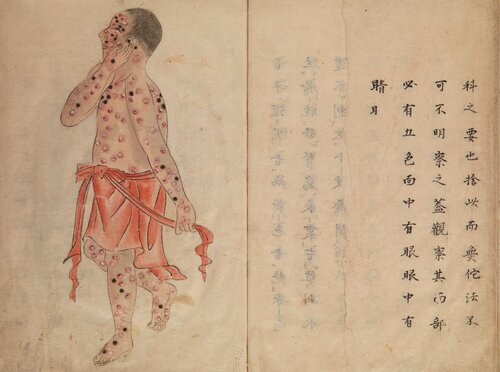 科之要也捨此而無佗法不
可不明察之蓋觀察其面部
必有五色面中有眼眼中有
睛月